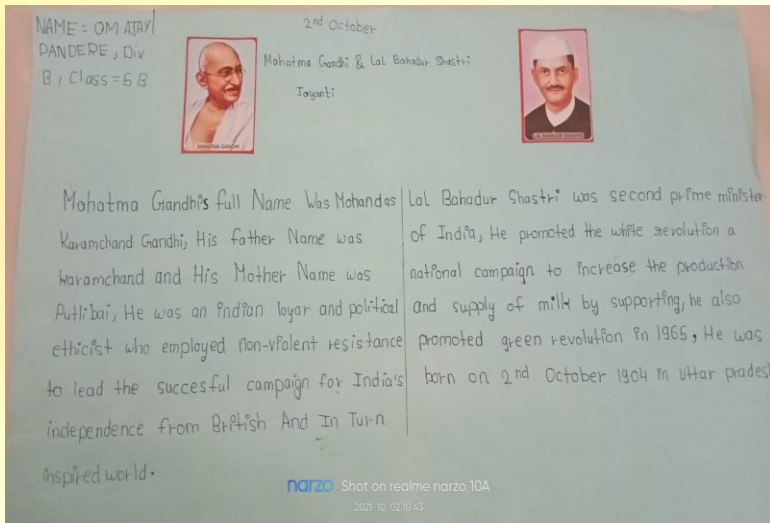 NAME = OM AJAY
PANDERE, Div
B, Class = 6 B
2nd October
Mahatma Gandhi & Lal Bahadur Shastri
Jayanti
MAHATMA GANDHI
LAL BAHADUR SHASTRI
Mahatma Gandhi's full Name Was Mohandas
Karamchand Gandhi, His father Name was
Karamchand and His Mother Name was
Putlibai, He was an indian loyar and political
ethicist who employed non-violent resistance
to lead the succesful campaign for India's
independence from British And In Turn
inspired world.
Lal Bahadur Shastri was second prime minister
of India, He promoted the white revolution a
national campaign to increase the production
and supply of milk by supporting, he also
promoted green revolution in 1965, He was
born on 2nd October 1904 in Uttar prades
narzo Shot on realme narzo 10A
2021.10.02 10:43